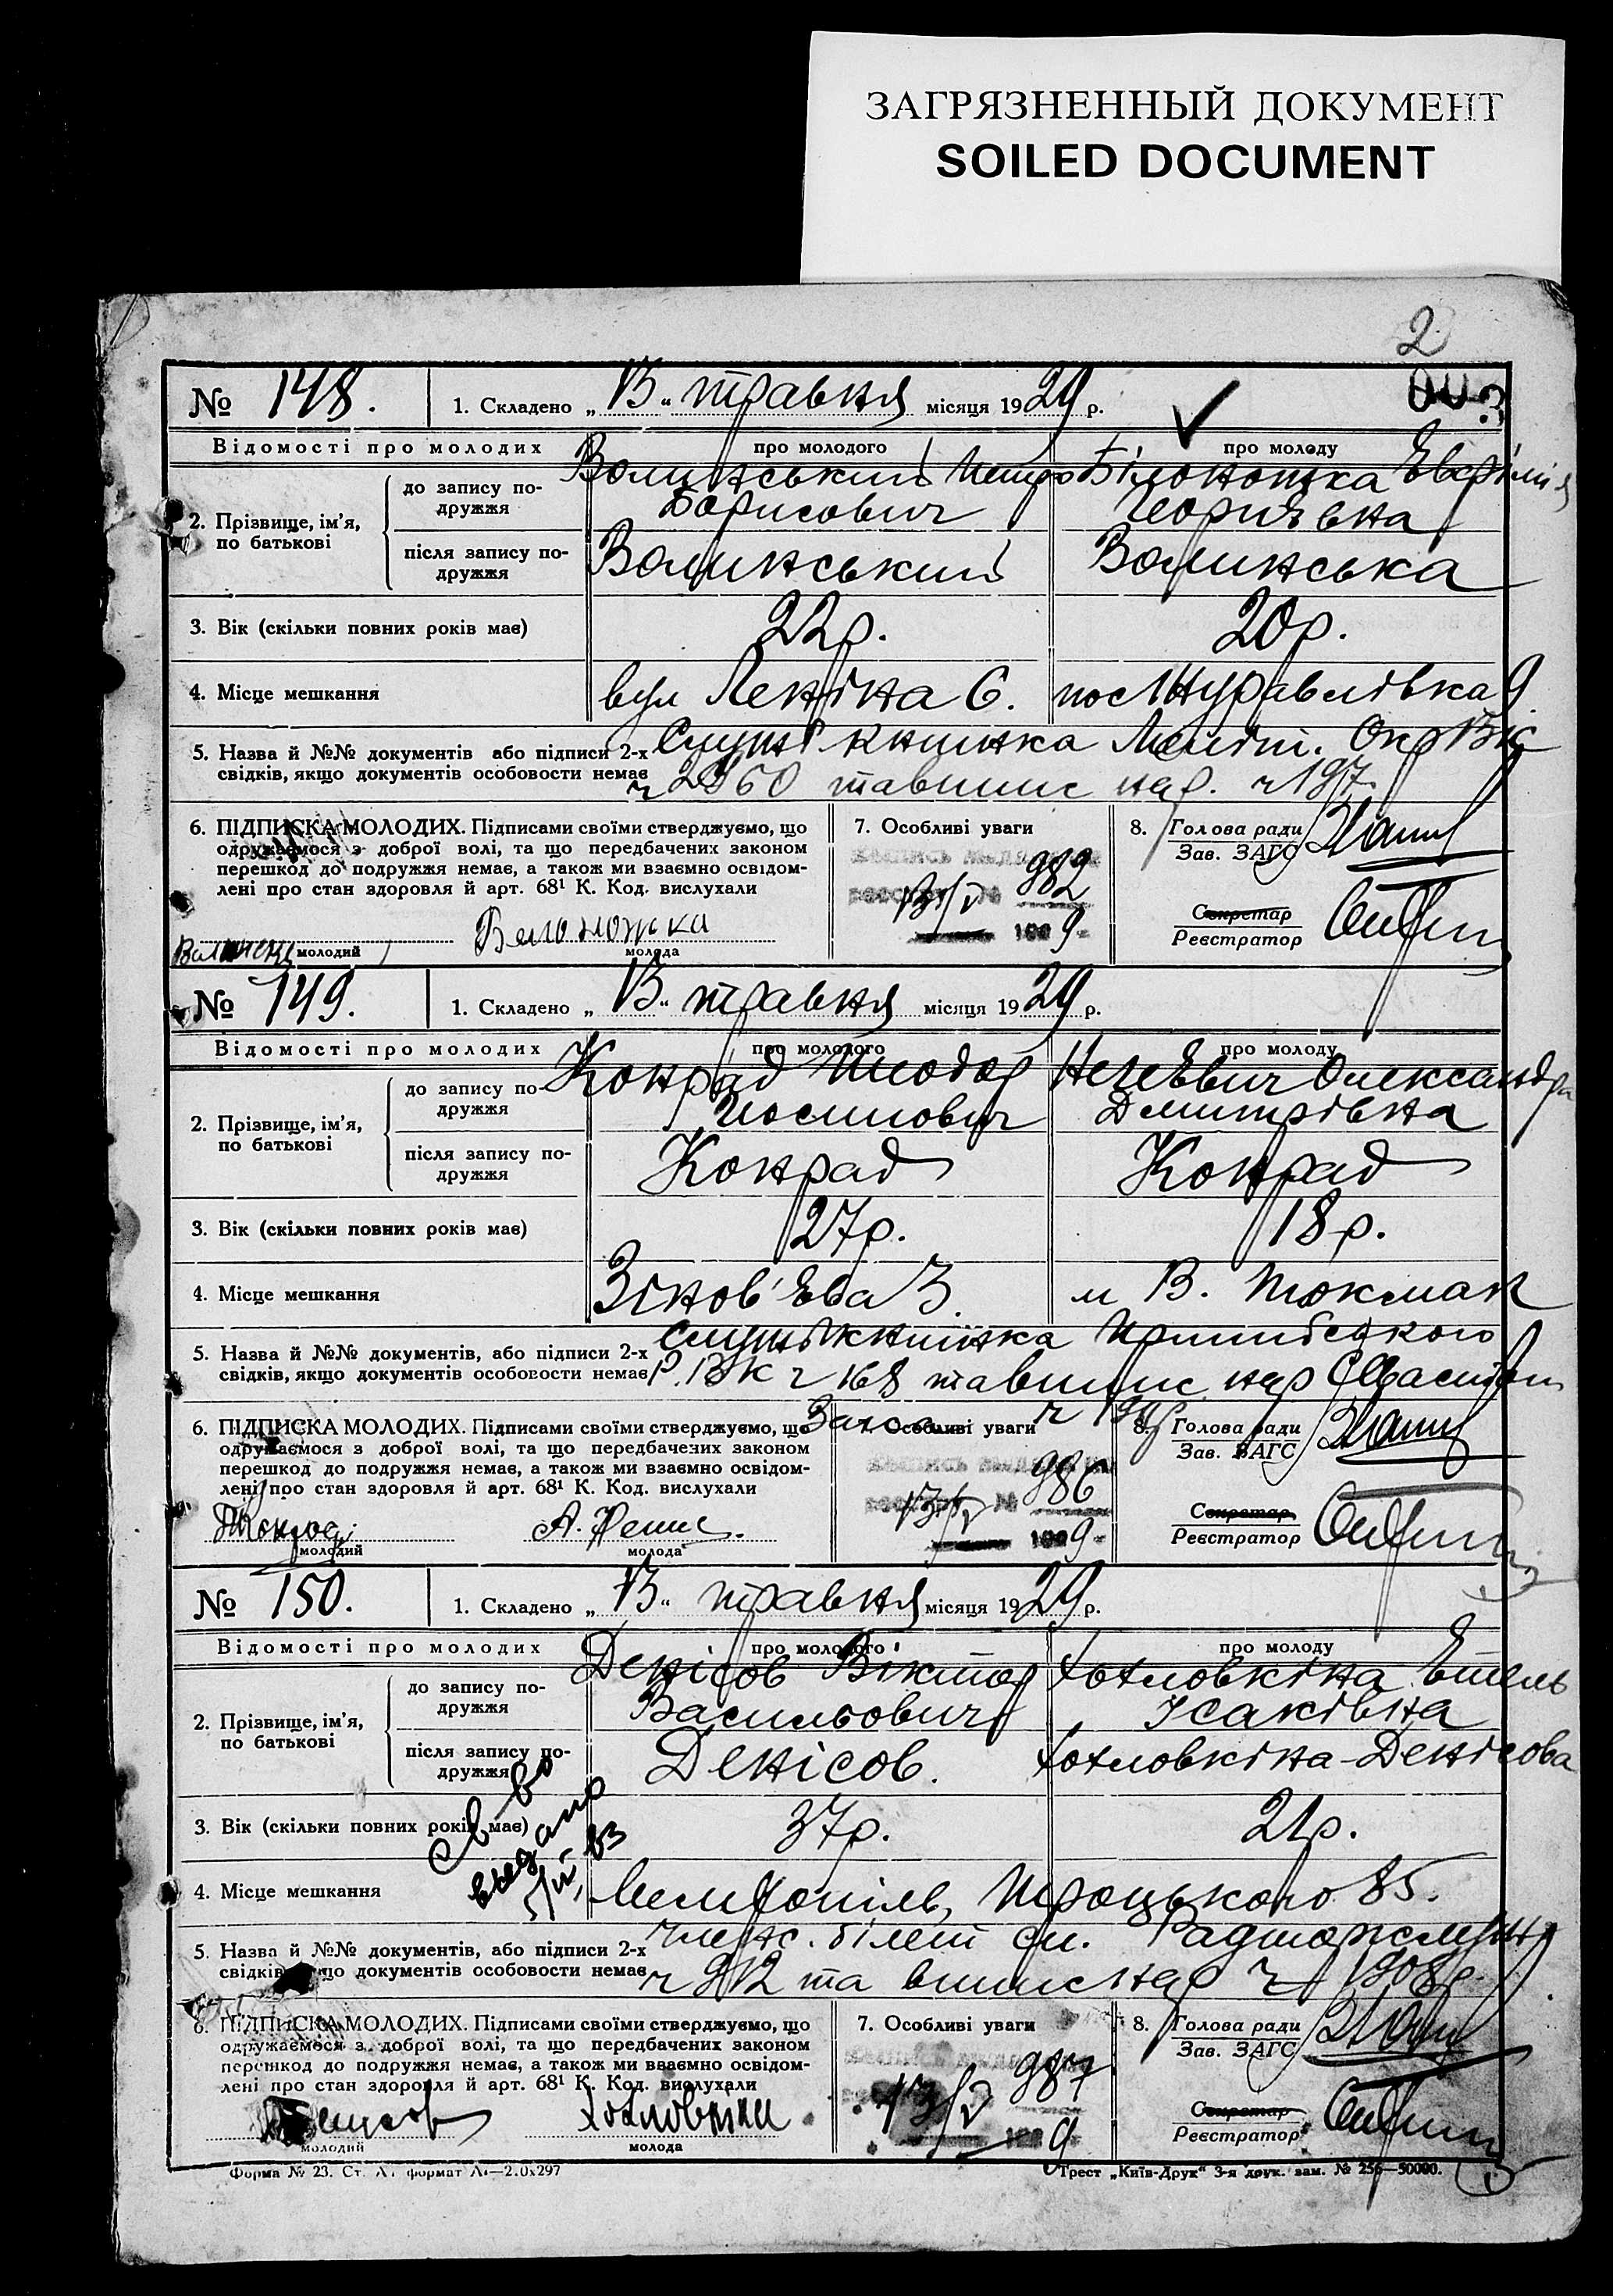 ЗАГРЯЗНЕННЫЙ ДОКУМЕНТ
SOILED DOCUMENT
2
№ 148. 1. Складено „13“ травня місяця 1929 р.
Відомості про молодих про молодого про молоду
2. Прізвище, ім’я, по батькові
до запису подружжя
Волинський Петро Білоножка
Борисович
після запису по-
дружжя
Волинський Волинська
3. Вік (скільки повних років має) 22р. 20р.
4. Місце мешкання вул Леніна 6. пос Журавлівка 9
5. Назва й №№ документів або підписи 2-х
свідків, якщо документів особовости немає
книжка Меліт. Окр
6. ПІДПИСКА МОЛОДИХ. Підписами своїми стверджуємо, що
одружаємося з доброї волі, та що передбачених законом
перешкод до подружжя немає, а також ми взаємно освідом-
лені про стан здоровля й арт. 68¹ К. Код. вислухали
Беложожка
молодий молода
7. Особливі уваги
982
13/V
9
8. Голова ради
Зав. ЗАГС
Секретар
Реєстратор
№ 149. 1. Складено „13“ травня місяця 1929 р.
Відомості про молодих про молодого про молоду
2. Прізвище, ім’я,
по батькові
до запису по-
дружжя
Конрад Теодор Олександра
Йосипович Дмитрівна
після запису по-
дружжя
Конрад Конрад
3. Вік (скільки повних років має) 27р. 18р.
4. Місце мешкання Зінов’єва 3. м В. Токмак
5. Назва й №№ документів, або підписи 2-х
свідків, якщо документів особовости немає
книжка
Р.В.К ч 168
6. ПІДПИСКА МОЛОДИХ. Підписами своїми стверджуємо, що
одружаємося з доброї волі, та що передбачених законом
перешкод до подружжя немає, а також ми взаємно освідом-
лені про стан здоровля й арт. 68¹ К. Код. вислухали
молодий молода
7. Особливі уваги
986
13/V
9
8. Голова ради
Зав. ЗАГС
Секретар
Реєстратор
№ 150. 1. Складено „13“ травня місяця 1929 р.
Відомості про молодих про молодого про молоду
2. Прізвище, ім’я,
по батькові
до запису по-
дружжя
Денісов Віктор Хотловкіна Етель
Васильович Ісаківна
після запису по-
дружжя
Денісов. Хотловкіна-Денісова
3. Вік (скільки повних років має) 37р. 21р.
св-во
видано
4. Місце мешкання Мелітопіль, Троцького 85.
5. Назва й №№ документів, або підписи 2-х
свідків, якщо документів особовости немає
членс. білет сп. Радторжслуж
ч 912 та випис нар ч 1908р.
6. ПІДПИСКА МОЛОДИХ. Підписами своїми стверджуємо, що
одружаємося з доброї волі, та що передбачених законом
перешкод до подружжя немає, а також ми взаємно освідом-
лені про стан здоровля й арт. 68¹ К. Код. вислухали
молодий молода
7. Особливі уваги
987
13/V
9
8. Голова ради
Зав. ЗАГС
Секретар
Реєстратор
Форма № 23.
Трест „Київ-Друк“ 3-я друк. зам. № 256—50000.